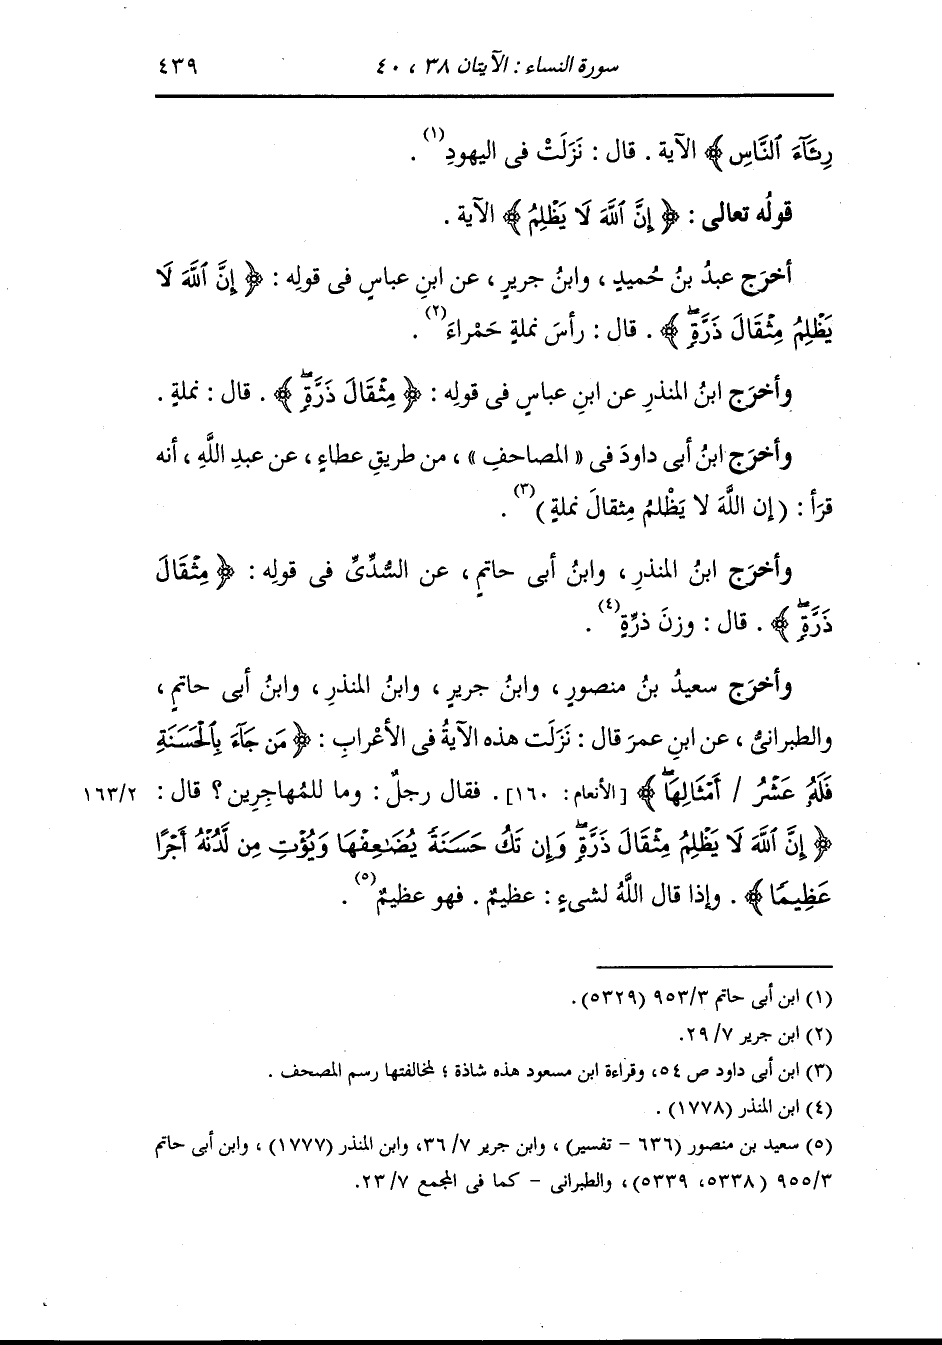 سورة النساء : الآيتان ٣٨ ، ٤٠ ٤٣٩
رِئَآءَ ٱلنَّاسِ ﴾ الآية . قال : نَزَلَتْ فى اليهودِ(١) .
قولُه تعالى : ﴿ إِنَّ ٱللَّهَ لَا يَظْلِمُ ﴾ الآية .
أخرَج عبدُ بنُ حُميدٍ ، وابنُ جريرٍ ، عن ابنِ عباسٍ فى قولِه : ﴿ إِنَّ ٱللَّهَ لَا
يَظْلِمُ مِثْقَالَ ذَرَّةٍۖ ﴾ . قال : رأسَ نملةٍ حَمْراءَ(٢) .
وأخرَج ابنُ المنذرِ عن ابنِ عباسٍ فى قولِه : ﴿ مِثْقَالَ ذَرَّةٍۖ ﴾ . قال : نملةٍ .
وأخرَج ابنُ أبى داودَ فى « المصاحفِ » ، من طريقِ عطاءٍ ، عن عبدِ اللَّهِ ، أنه
قرَأ : ( إن اللَّهَ لا يَظْلمُ مِثقالَ نملةٍ )(٣) .
وأخرَج ابنُ المنذرِ ، وابنُ أبى حاتمٍ ، عن السُّدِّىِّ فى قولِه : ﴿ مِثْقَالَ
ذَرَّةٍۖ ﴾ . قال : وزنَ ذرَّةٍ(٤) .
وأخرَج سعيدُ بنُ منصورٍ ، وابنُ جريرٍ ، وابنُ المنذرِ ، وابنُ أبى حاتمٍ ،
والطبرانىُّ ، عن ابنِ عمرَ قال : نَزَلَت هذه الآيةُ فى الأعْرابِ : ﴿ مَن جَآءَ بِٱلْحَسَنَةِ
فَلَهُۥ عَشْرُ / أَمْثَالِهَاۖ ﴾ [الأنعام: ١٦٠] . فقال رجلٌ : وما للمُهاجِرِين ؟ قال : ١٦٣/٢
﴿ إِنَّ ٱللَّهَ لَا يَظْلِمُ مِثْقَالَ ذَرَّةٍۖ وَإِن تَكُ حَسَنَةً يُضَٰعِفْهَا وَيُؤْتِ مِن لَّدُنْهُ أَجْرًا
عَظِيمًا ﴾ . وإذا قال اللَّهُ لشىءٍ : عظيمٌ . فهو عظيمٌ(٥) .
(١) ابن أبى حاتم ٩٥٣/٣ (٥٣٢٩).
(٢) ابن جرير ٢٩/٧.
(٣) ابن أبى داود ص ٥٤، وقراءة ابن مسعود هذه شاذة ؛ لمخالفتها رسم المصحف .
(٤) ابن المنذر (١٧٧٨) .
(٥) سعيد بن منصور (٦٣٦ - تفسير) ، وابن جرير ٣٦/٧، وابن المنذر (١٧٧٧) ، وابن أبى حاتم
٩٥٥/٣ (٥٣٣٨، ٥٣٣٩)، والطبرانى - كما فى المجمع ٢٣/٧.